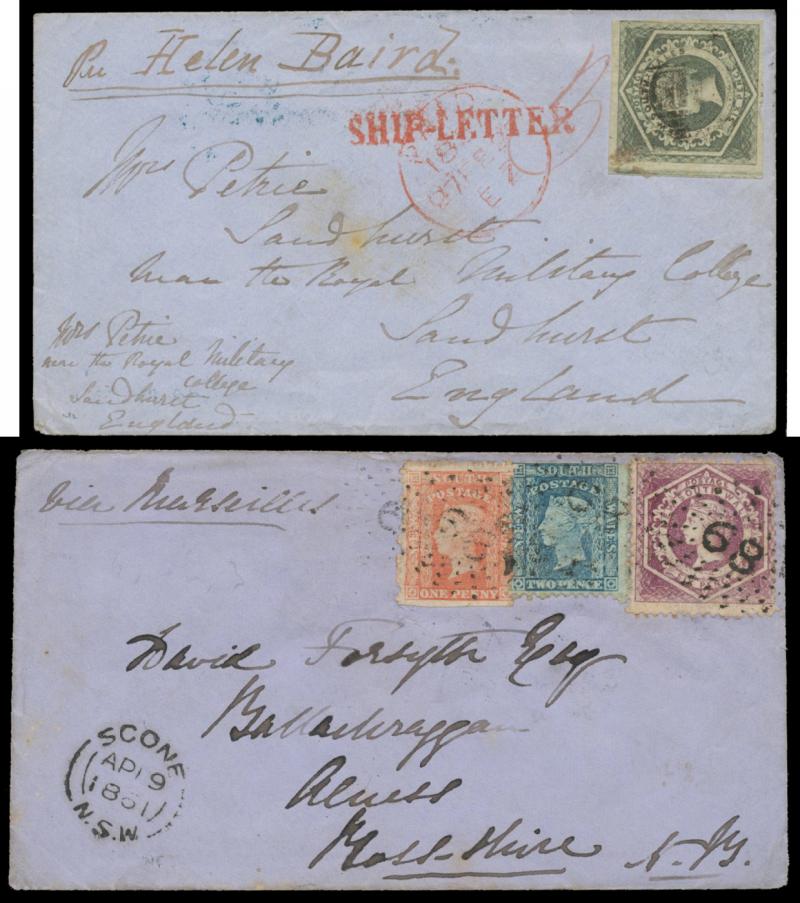 Per Helen Baird.
SHIP-LETTER
PAID
18
E
Mrs Petrie
Sandhurst
near the Royal Military College
Sandhurst
England
Mrs Petrie
near the Royal Military
College
Sandhurst
England
via Marseilles
SOUTH
POSTAGE
WALES
ONE PENNY
SOUTH
POSTAGE
WALES
TWO PENCE
POSTAGE
SOUTH
68
David Forsyth Esq
Ballachraggan
Alness
Ross-shire N.B.
SCONE
AP 19
1861
N.S.W